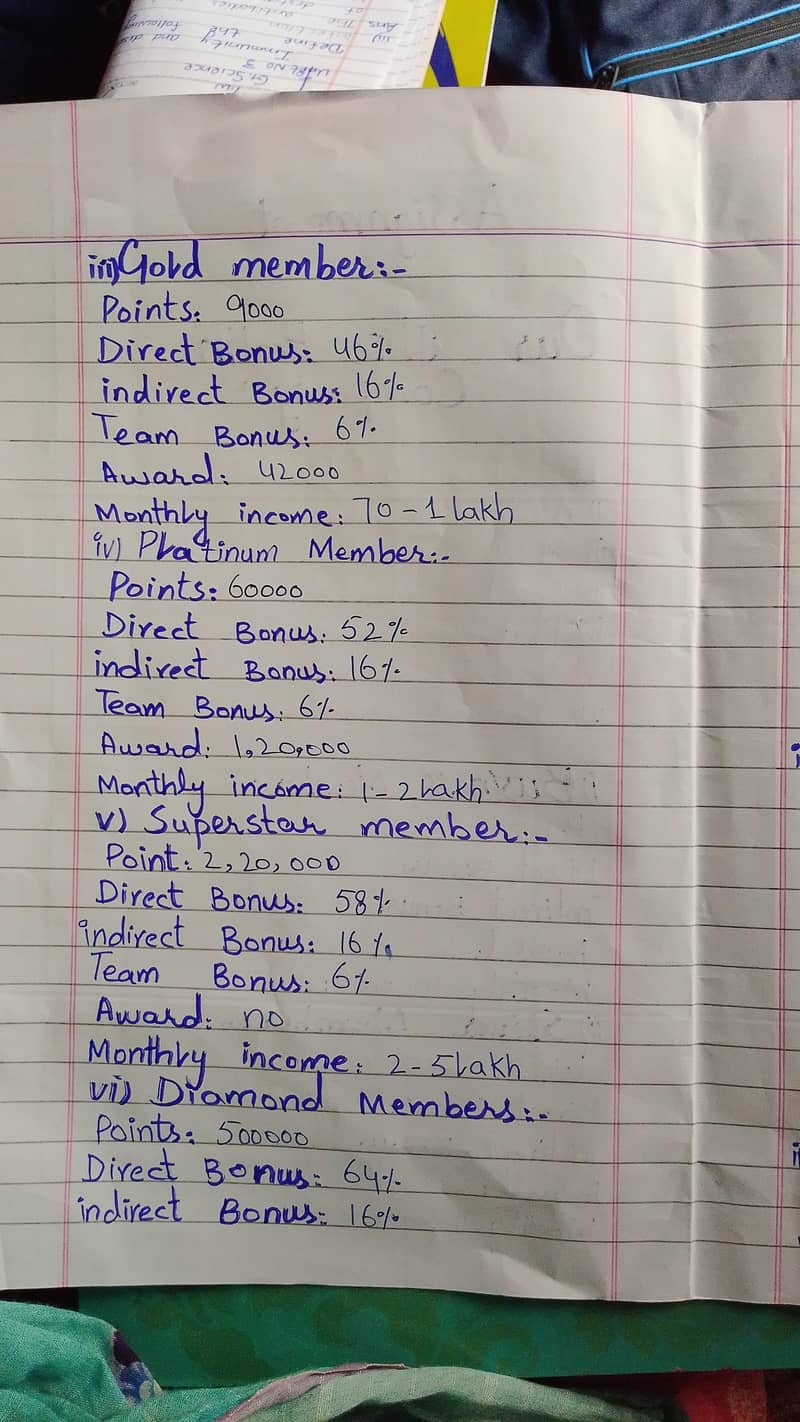 iii) Gold member:-
Points: 9000
Direct Bonus: 46%
indirect Bonus: 16%
Team Bonus: 6%
Award: 42000
Monthly income: 70-1 lakh
iv) Platinum Member:-
Points: 60000
Direct Bonus: 52%
indirect Bonus: 16%
Team Bonus: 6%
Award: 1,20,000
Monthly income: 1-2 Lakh
v) Superstar member:-
Point: 2,20,000
Direct Bonus: 58%
indirect Bonus: 16%
Team Bonus: 6%
Award: no
Monthly income: 2-5 lakh
vi) Diamond Members:-
Points: 500000
Direct Bonus: 64%
indirect Bonus: 16%
G.Science
Unit No 3
Immunity
Define the and following